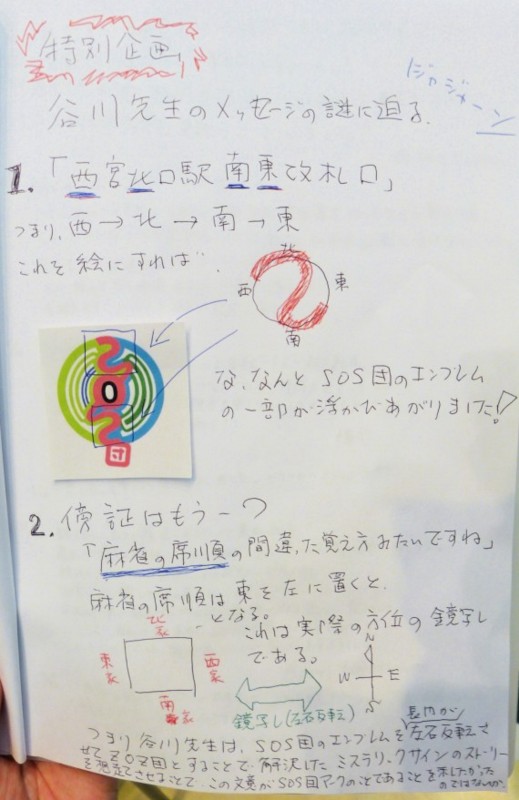 特別企画
谷川先生のメッセージの謎に迫る。
ジャジャーン
1. 「西宮北口駅 南東改札口」
つまり、西→北→南→東
これを絵にすれば
北
西
東
南
な、なんとSOS団のエンブレム
の一部が浮かびあがりました!
団
2. 傍証はもう一つ
「麻雀の席順の間違った覚え方みたいですね」
麻雀の席順は東を左に置くと、
となる。
北家
東家
西家
南家
これは実際の方位の鏡写し
である。
N
W
E
S
鏡写し(左右反転)
長門が
つまり谷川先生は、SOS団のエンブレムを左右反転さ
せてZOZ団とすることで解決したミステリックサインのストーリー
を想定させることで、この文意がSOS団マークのことであることを示したかった
のではないか。